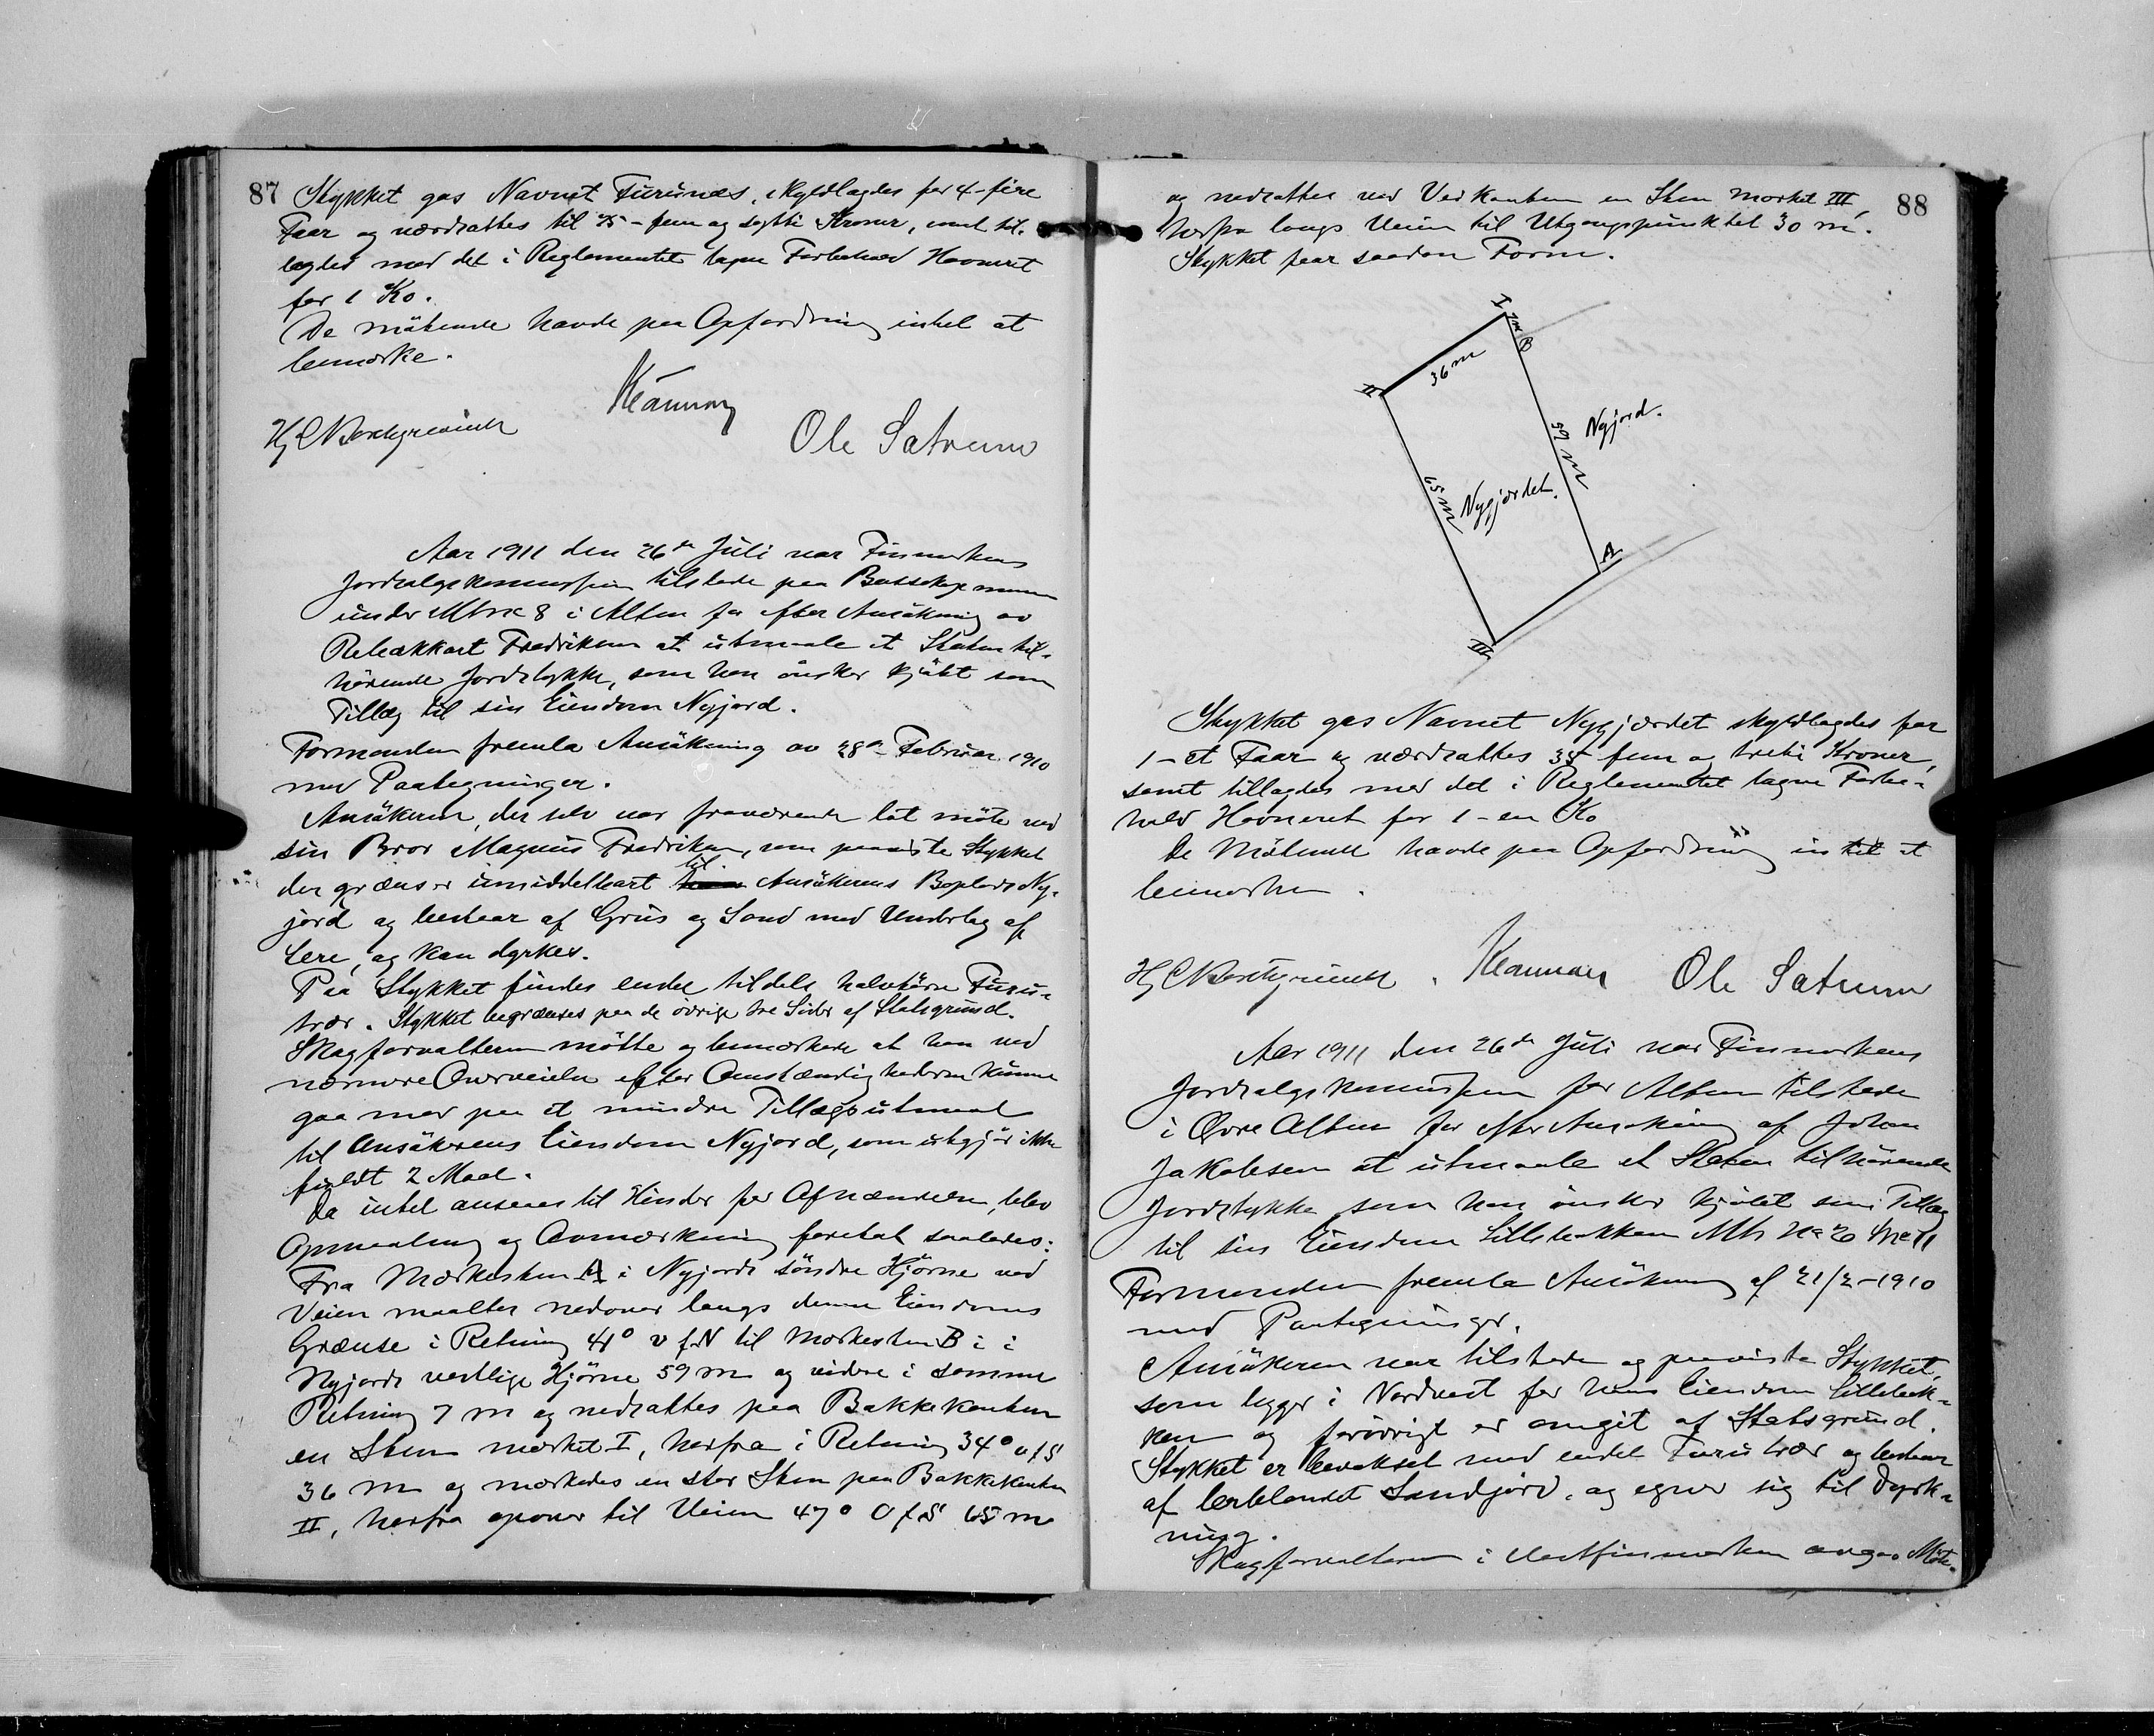 87
Stykket gas Navnet Furunæs, skyldlagdes for 4-fire
Faar og værdsattes til 75 - fem og sytti Kroner, samt til-
lagdes med det i Reglementet tagne Forbehold Havneret
for 1 Ko.
De mötende havde paa Opfordring intet at
bemærke.
Ole Satrum
Aar 1911 den 26de Juli var Finmarkens
Jordsalgskommission tilstede paa Bossekopmoen
under Mtr No 8 i Alten for efter Ansökning av
Rebekka Fredriksen at utmaale et Staten til-
hörende Jordstykke, som hun önsker kjöbt som
Tillæg til sin Eiendom Nyjord.
Formanden fremla Ansökning av 28de Februar 1910
med Paategninger.
Ansökeren, der selv var fraværende lot möte ved
sin Bror Magnus Fredriksen, som paaviste Stykket
der grænser umiddelbart til Ansökerens Boplads Ny-
jord og bestaar af Grus og Sand med Underlag af
Lere, og kan dyrkes.
Paa Stykket findes endel tildels halvtörre Furu-
trær. Stykket begrænses paa de övrige tre Sider af Statsgrund.
Skogforvalteren mötte og bemærkede at han ved
nærmere Overveielse efter Omstændighederne kunne
gaa med paa et mindre Tillægsutmaal
til Ansökerens Eiendom Nyjord, som utgjör ikke
fuldt 2 Maal.
Da intet ansees til Hinder for Afhændelse, blev
Opmaaling og Avmærkning foretat saaledes:
Fra Mærkesten A i Nyjords söndre Hjörne ved
Veien maaltes nedover langs denne Eiendoms
Grænse i Retning 41° v f N til Mærkesten B i i
Nyjords vestlige Hjörne 59 m og videre i samme
Retning 7 m og nedsattes paa Bakkekanten
en Sten mærket I, herfra i Retning 34° v f S
36 m og mærkedes en stor Sten paa Bakkekanten
II, herfra opover til Veien 47° O f S 65 m
88
og nedsattes ved Veikanten en Sten mærket III,
herfra langs Veien til Utgangspunktet 30 m.
Stykket faar saadan Form.
I
7 m
B
36 m
II
59 m
Nyjord.
65 m
Nygjærdet.
A
III
Stykket gas Navnet Nygjærdet skyldlagdes for
1 - et Faar og værdsattes 35 fem og treti Kroner,
samt tillagdes med det i Reglementet tagne Forbe-
hold Havneret for 1 - en Ko
De Mötende havde paa Opfordring intet at
bemærke.
Ole Satrum
Aar 1911 den 26de Juli var Finmarkens
Jordsalgskommission for Alten tilstede
i Övre Alten for efter Ansökning af Johan
Jakobsen at utmaale et Staten tilhörende
Jordstykke som han önsker kjöbt som Tillæg
til sin Eiendom Lillebakken Mtr No 20 No 11
Formanden fremla Ansökning af 21/2-1910
med Paategninger.
Ansökeren var tilstede og paaviste Stykket,
som ligger i Nordvest for hans Eiendom Lillebak-
ken og forövrigt er omgit af Statsgrund.
Stykket er bevokset med endel Furutrær og bestaar
af lerblandet Sandjord, og egner sig til Dyrk-
ning.
Skogforvalteren i Vestfinmarken avgav Möte-